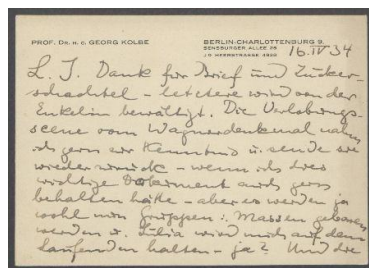 PROF. DR. H. C. GEORG KOLBE
BERLIN-CHARLOTTENBURG 9
SENSBURGER ALLEE 26
J 9 HEERSTRASSE
16. IV 34
L. J. Dank für Brief und Zucker-
schachtel – letztere wird von der
Enkelin bewältigt. Die Verlobungs-
scene vom Wagnerdenkmal nahm
ich gern zur Kenntnis u. sende sie
wieder zurück – wenn ich dies
wichtige Dokument auch gern
behalten hätte – aber es werden ja
wohl nun Gruppen i. Massen geboren
werden u. Lilia wird mich auf dem
Laufenden halten – ja? Und die